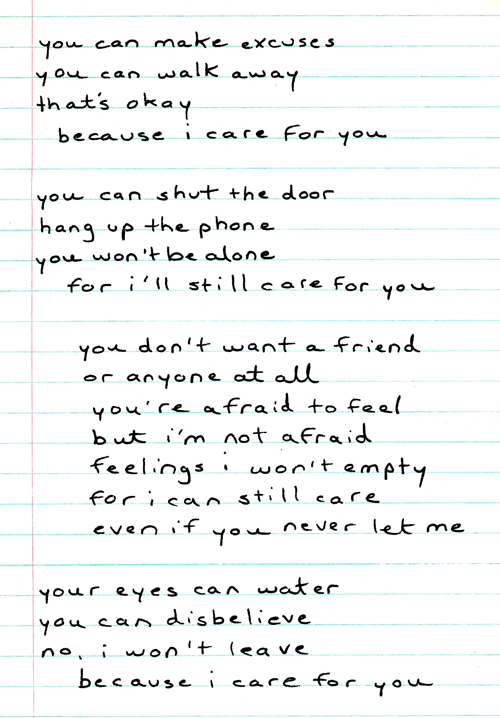 you can make excuses
you can walk away
that's okay
because i care for you
you can shut the door
hang up the phone
you won't be alone
for i'll still care for you
you don't want a friend
or anyone at all
you're afraid to feel
but i'm not afraid
feelings i won't empty
for i can still care
even if you never let me
your eyes can water
you can disbelieve
no, i won't leave
because i care for you